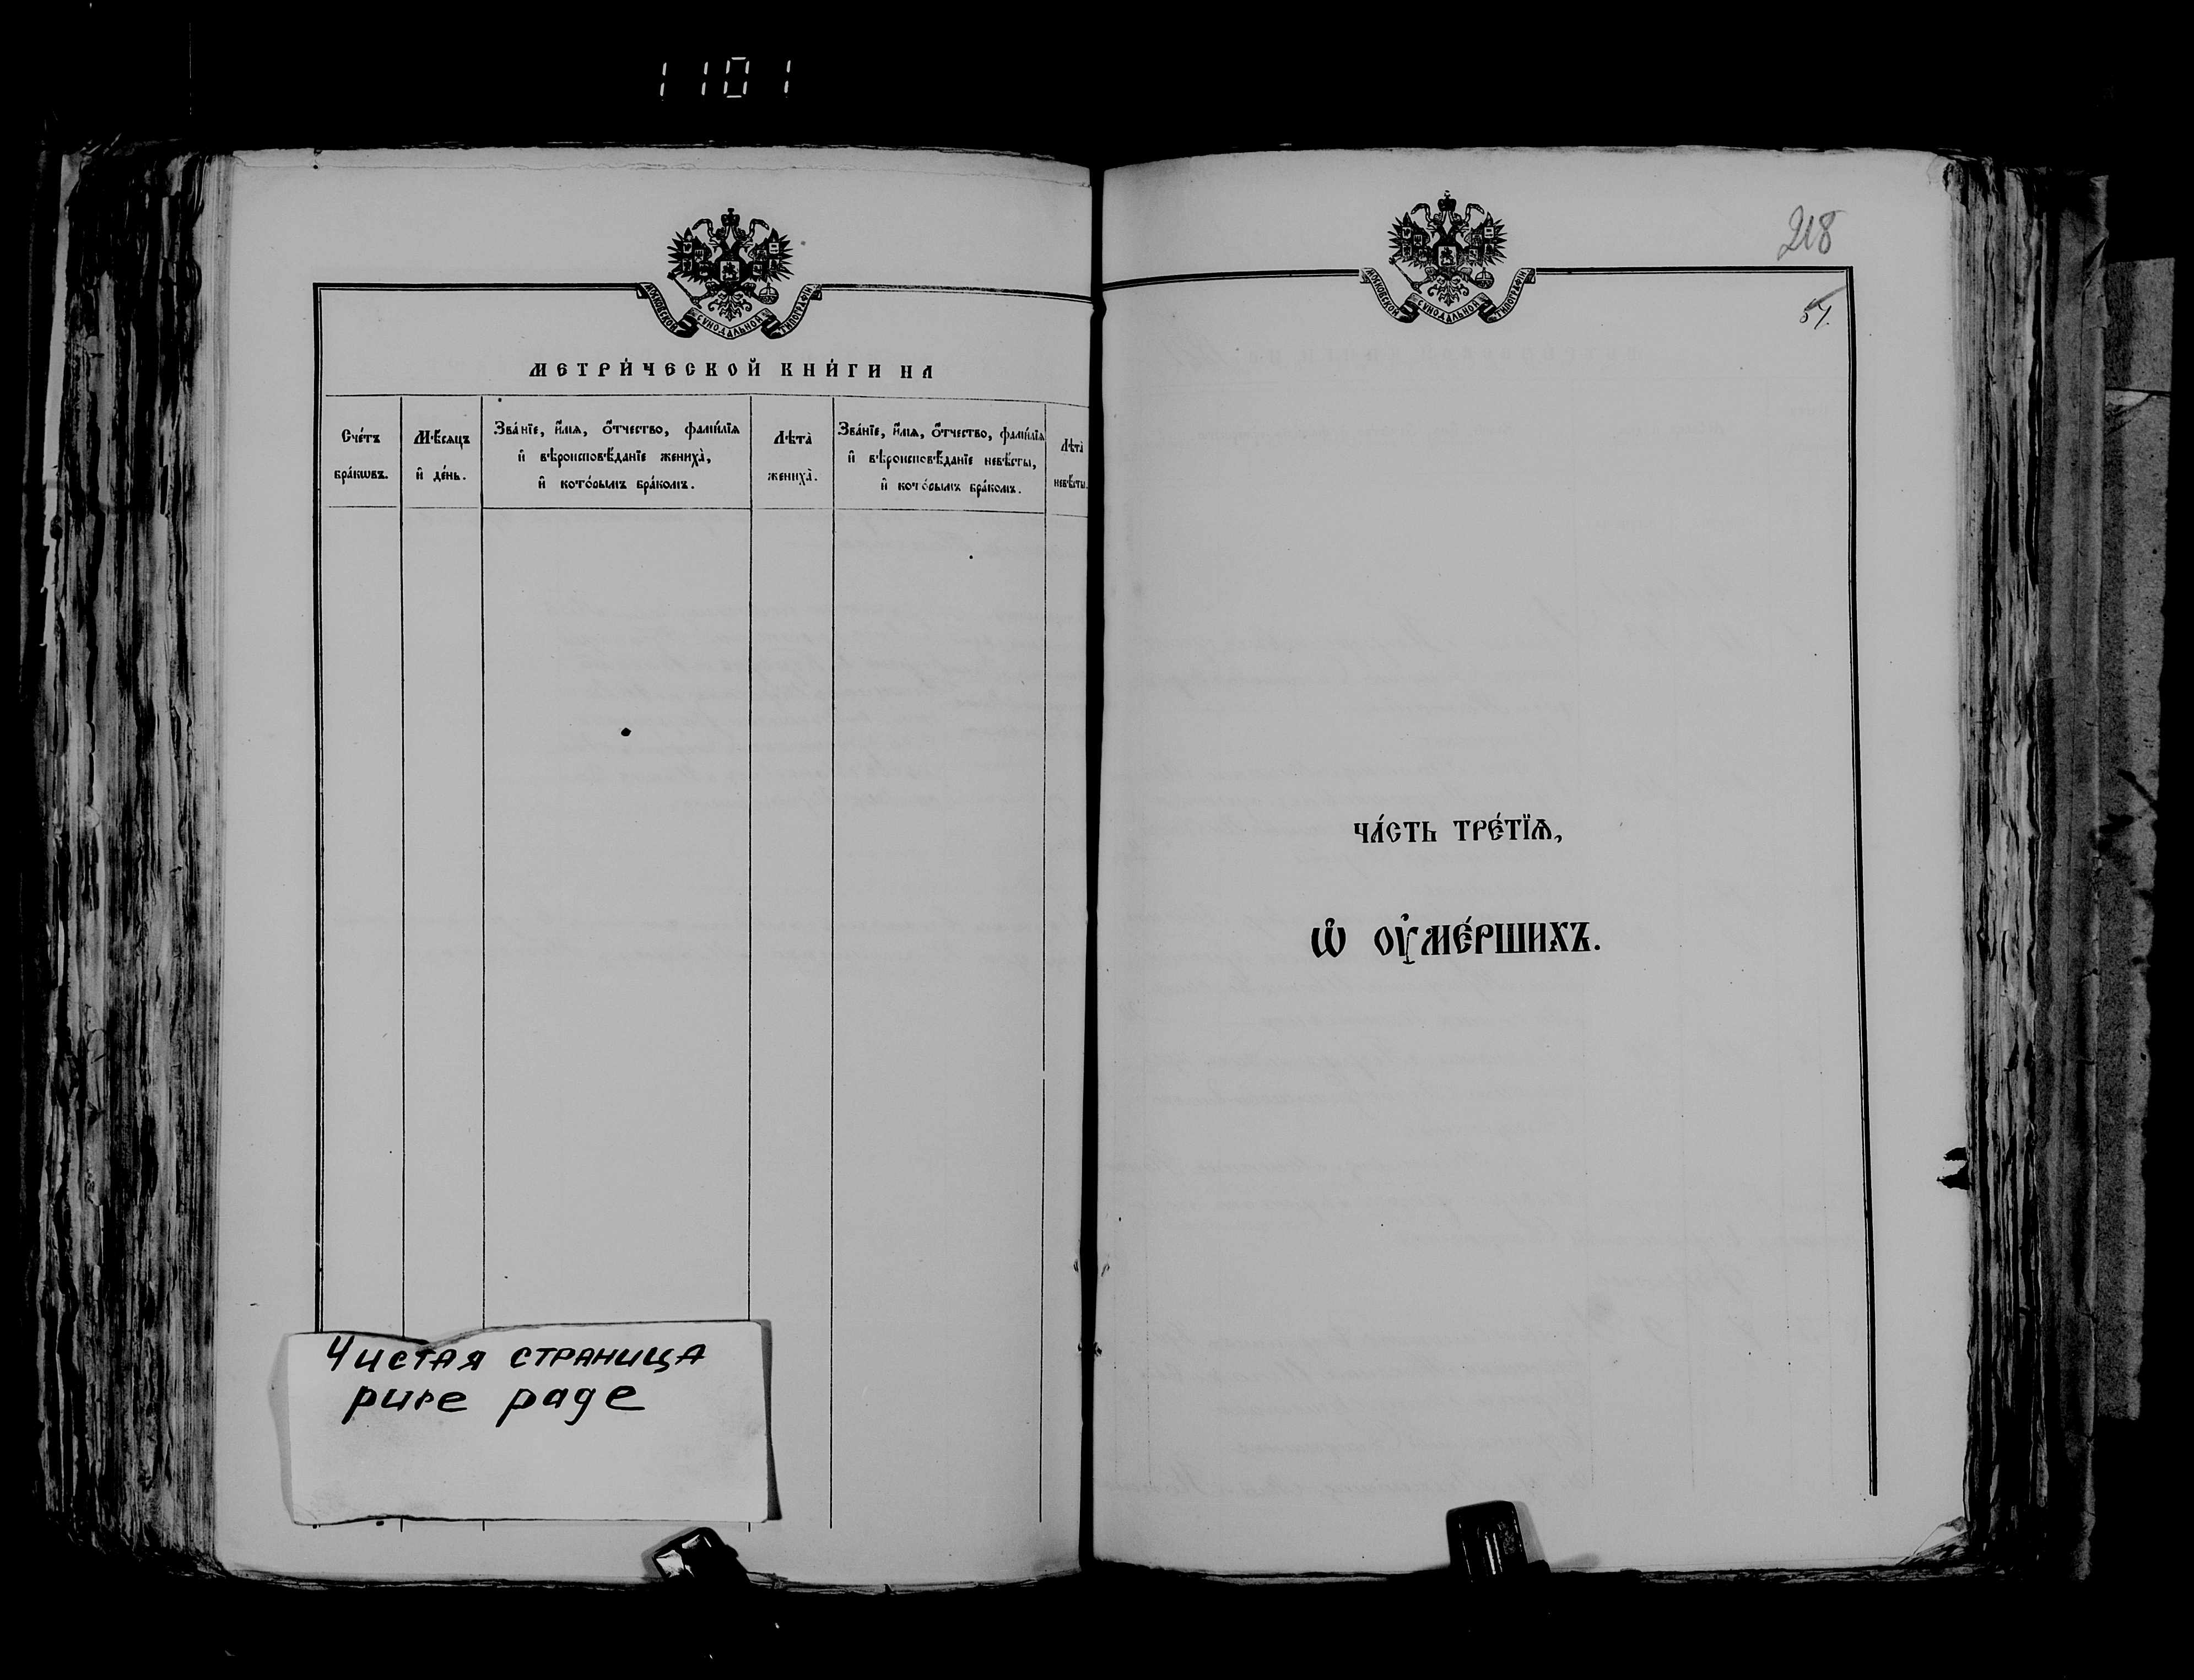 1101
МОСКОВСКОЙ СУНОДАЛЬНОЙ ТИПОГРАФІИ
МЕТРИ́ЧЕСКОЙ КНИ́ГИ НА
Сче́тъ бра́кѡвъ.
Мѣ́сяцъ и҆ де́нь.
Зва́нїе, и҆́мя, ѻ҆́тчество, фами́лїя
и҆ вѣроисповѣ́данїе жениха̀,
и҆ кото́рымъ бра́комъ.
Лѣта̀ жениха̀.
Зва́нїе, и҆́мя, ѻ҆́тчество, фами́лїя
и҆ вѣроисповѣ́данїе невѣ́сты,
и҆ кото́рымъ бра́комъ.
Лѣта̀ невѣ́сты.
Чистая страница
pure page
МОСКОВСКОЙ СУНОДАЛЬНОЙ ТИПОГРАФІИ
218
ЧА́СТЬ ТРЕ́ТЇѦ,
Ѡ҆ ОУ҆МЕ́РШИХЪ.